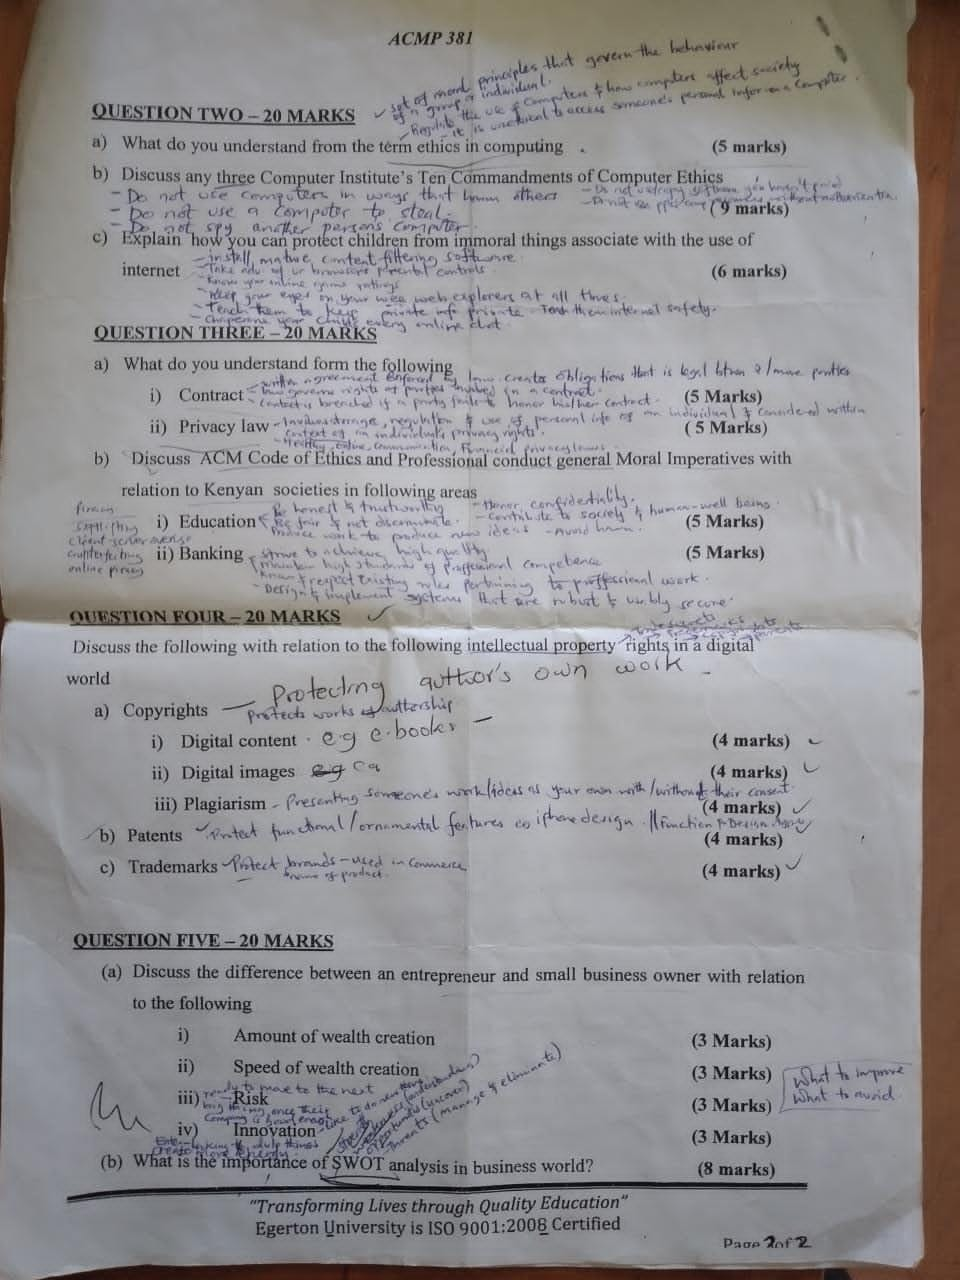 ACMP 381
set of moral principles that govern the behaviour
of a group or individual.
- Regulate the use of computers & how computers affect society
- it is unethical to access someone's personal infor on a computer.
QUESTION TWO – 20 MARKS
a) What do you understand from the term ethics in computing (5 marks)
b) Discuss any three Computer Institute's Ten Commandments of Computer Ethics
- Do not use computers in ways that others
- Do not use a computer to steal.
(9 marks)
- Do not spy another person's computer.
c) Explain how you can protect children from immoral things associate with the use of
- install mature content filtering software
internet (6 marks)
- Take adv of ur browsers parental controls
- Know your online game ratings
- Keep your eyes on your wee web explorers at all times.
- Teach them to keep private info private - Teach them internet safety.
- Chaperone your child's every online chat.
QUESTION THREE – 20 MARKS
a) What do you understand form the following
- written agreement enforced by law. creates obligations that is legal btwn 2/more parties
- law governs rights of parties involved in a contract.
i) Contract (5 Marks)
- Contract is breached if a party fails to honor his/her contract.
ii) Privacy law - regulation & use of personal info of an individual & considered within (5 Marks)
context of an individual's privacy rights.
- Healthy, Online, Communication, Financial privacy laws
b) Discuss ACM Code of Ethics and Professional conduct general Moral Imperatives with
relation to Kenyan societies in following areas
Piracy
softlifting
client-server overuse
counterfeiting
online piracy
Be honest & trustworthy - Honor confidentiality.
i) Education Be fair & not discriminate. - Contribute to society & human-well being. (5 Marks)
Produce work to produce new ideas - Avoid harm.
ii) Banking - strive to achieve high quality (5 Marks)
- Maintain high standards of proffessional competence
- Know & respect existing rules pertaining to proffessional work.
- Design & implement systems that are robust & usably secure.
QUESTION FOUR – 20 MARKS
Discuss the following with relation to the following intellectual property rights in a digital
world
Protecting author's own work
a) Copyrights – protects works of authership
i) Digital content · e.g e-books – (4 marks)
ii) Digital images eg (4 marks)
iii) Plagiarism - Presenting someone's work/ideas as your own with/without their consent. (4 marks)
b) Patents Protect functional/ornamental features eg iphone design. (4 marks)
c) Trademarks - Protect brands – used in commerce (4 marks)
name of product.
QUESTION FIVE – 20 MARKS
(a) Discuss the difference between an entrepreneur and small business owner with relation
to the following
i) Amount of wealth creation (3 Marks)
ii) Speed of wealth creation (3 Marks)
What to improve
What to avoid.
ready to move to the next
iii) Risk (3 Marks)
big thing once their
company is
iv) Innovation - like to do new thing (3 Marks)
strength
weakness (understanding)
opportunities (uncover)
- Threats (manage & eliminate)
(b) What is the importance of SWOT analysis in business world? (8 marks)
"Transforming Lives through Quality Education"
Egerton University is ISO 9001:2008 Certified
Page 2 of 2